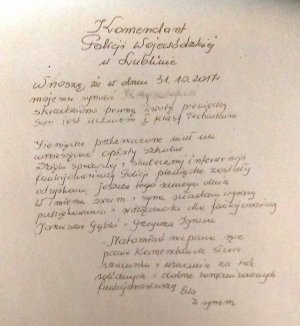 Komendant
Policji Wojewódzkiej
w Lublinie
Wnoszę, że w dniu 31.10.2017
mojemu synowi
skradziono pewną kwotę pieniędzy
Syn jest uczniem I klasy Technikum
Pieniądze przeznaczone miał na
uiszczenie opłaty szkolne
Dzięki sprawnej i skutecznej i
funkcjonariuszy Policji pieniądze zostały
odzyskane jeszcze tego samego dnia
W imieniu swoim i syna składam wyrazy
podziękowania i wdzięczności dla funkcjonariuszy
Janusza i Grzegorza
Natomiast na pana ręce
panie Komendancie
szacunku i uznania za tak
solidnych i dobrze
funkcjonariuszy
z synem